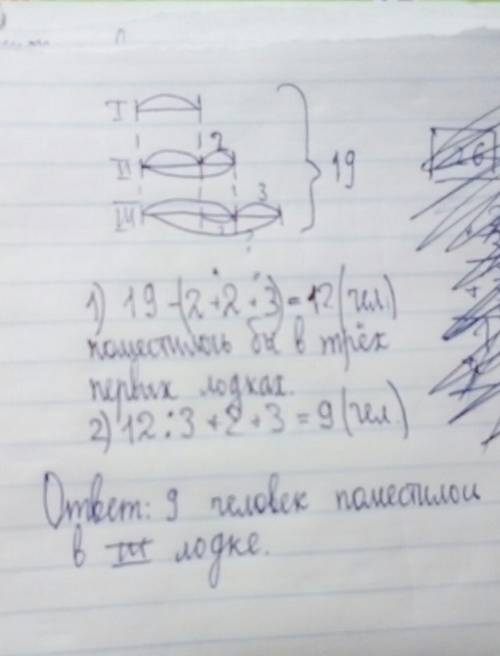 I
II 2
19
III 3
?
1) 19 - (2 + 2 + 3) = 12 (чел.)
поместилось бы в трёх
первых лодках.
2) 12 : 3 + 2 + 3 = 9 (чел.)
Ответ: 9 человек поместилось
в III лодке.